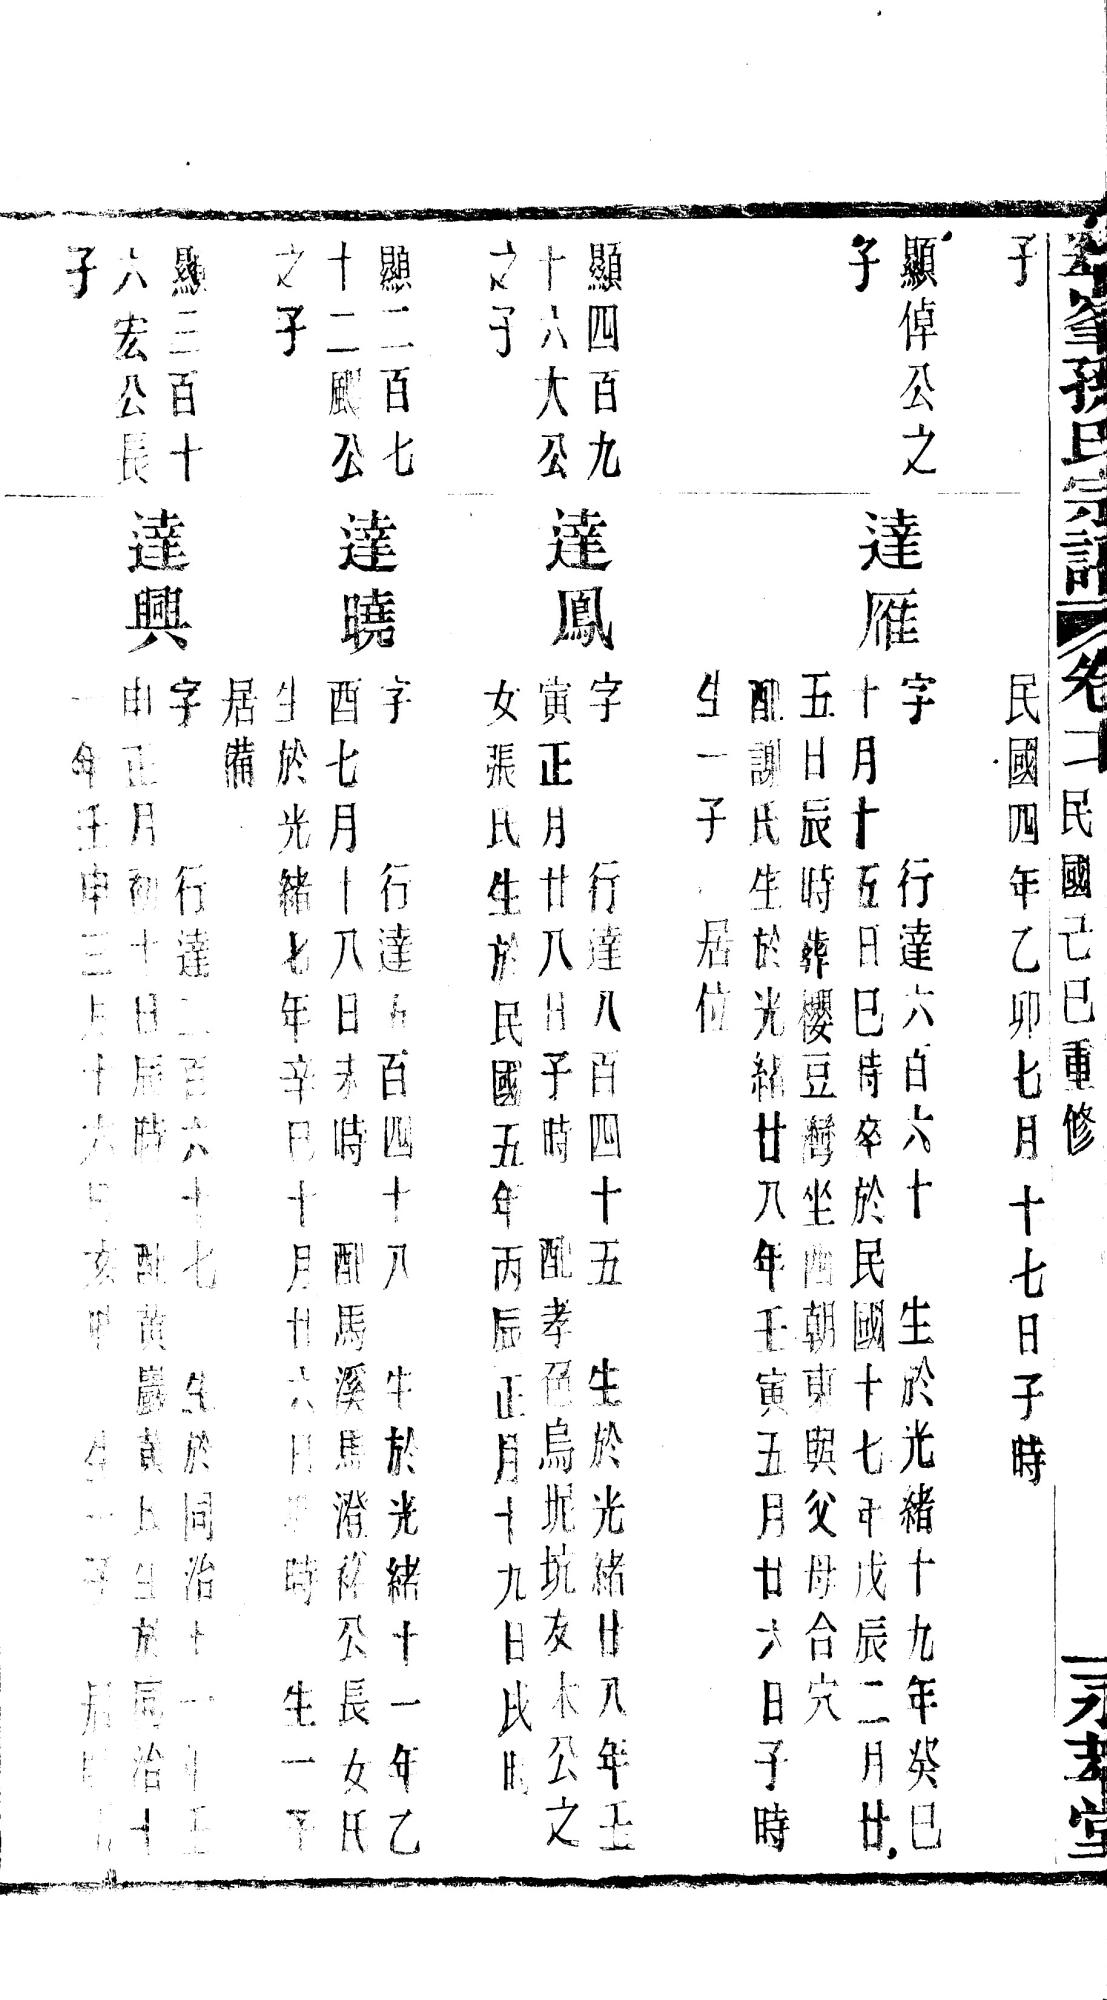 孫氏宗譜 卷 民國己巳重修
子
民國四年乙卯七月十七日子時
顯倬公之
子
達雁
字 行達六百六十 生於光緒十九年癸巳
十月十五日巳時卒於民國十七年戊辰二月廿
五日辰時葬櫻豆灣坐酉朝東與父母合穴
配謝氏生於光緒廿八年壬寅五月廿六日子時
生一子 居位
顯四百九
十六大公
之子
達鳳
字 行達八百四十五 生於光緒廿八年壬
寅正月廿八日子時 配孝邑烏坭坑友木公之
女張氏生於民國五年丙辰正月十九日氏時
顯二百七
十二颺公
之子
達曉
字 行達五百四十八 生於光緒十一年乙
酉七月十八日未時 配馬溪馬澄 公長女氏
生於光緒七年辛巳十月廿六日 時 生一子
居備
顯三百十
六宏公長
子
達興
字 行達二百六十七 生於同治十一年壬
申正月初十日辰時 配黃巖黃氏生於同治十
一年壬申三月十六日亥時 生一子 居
永 堂